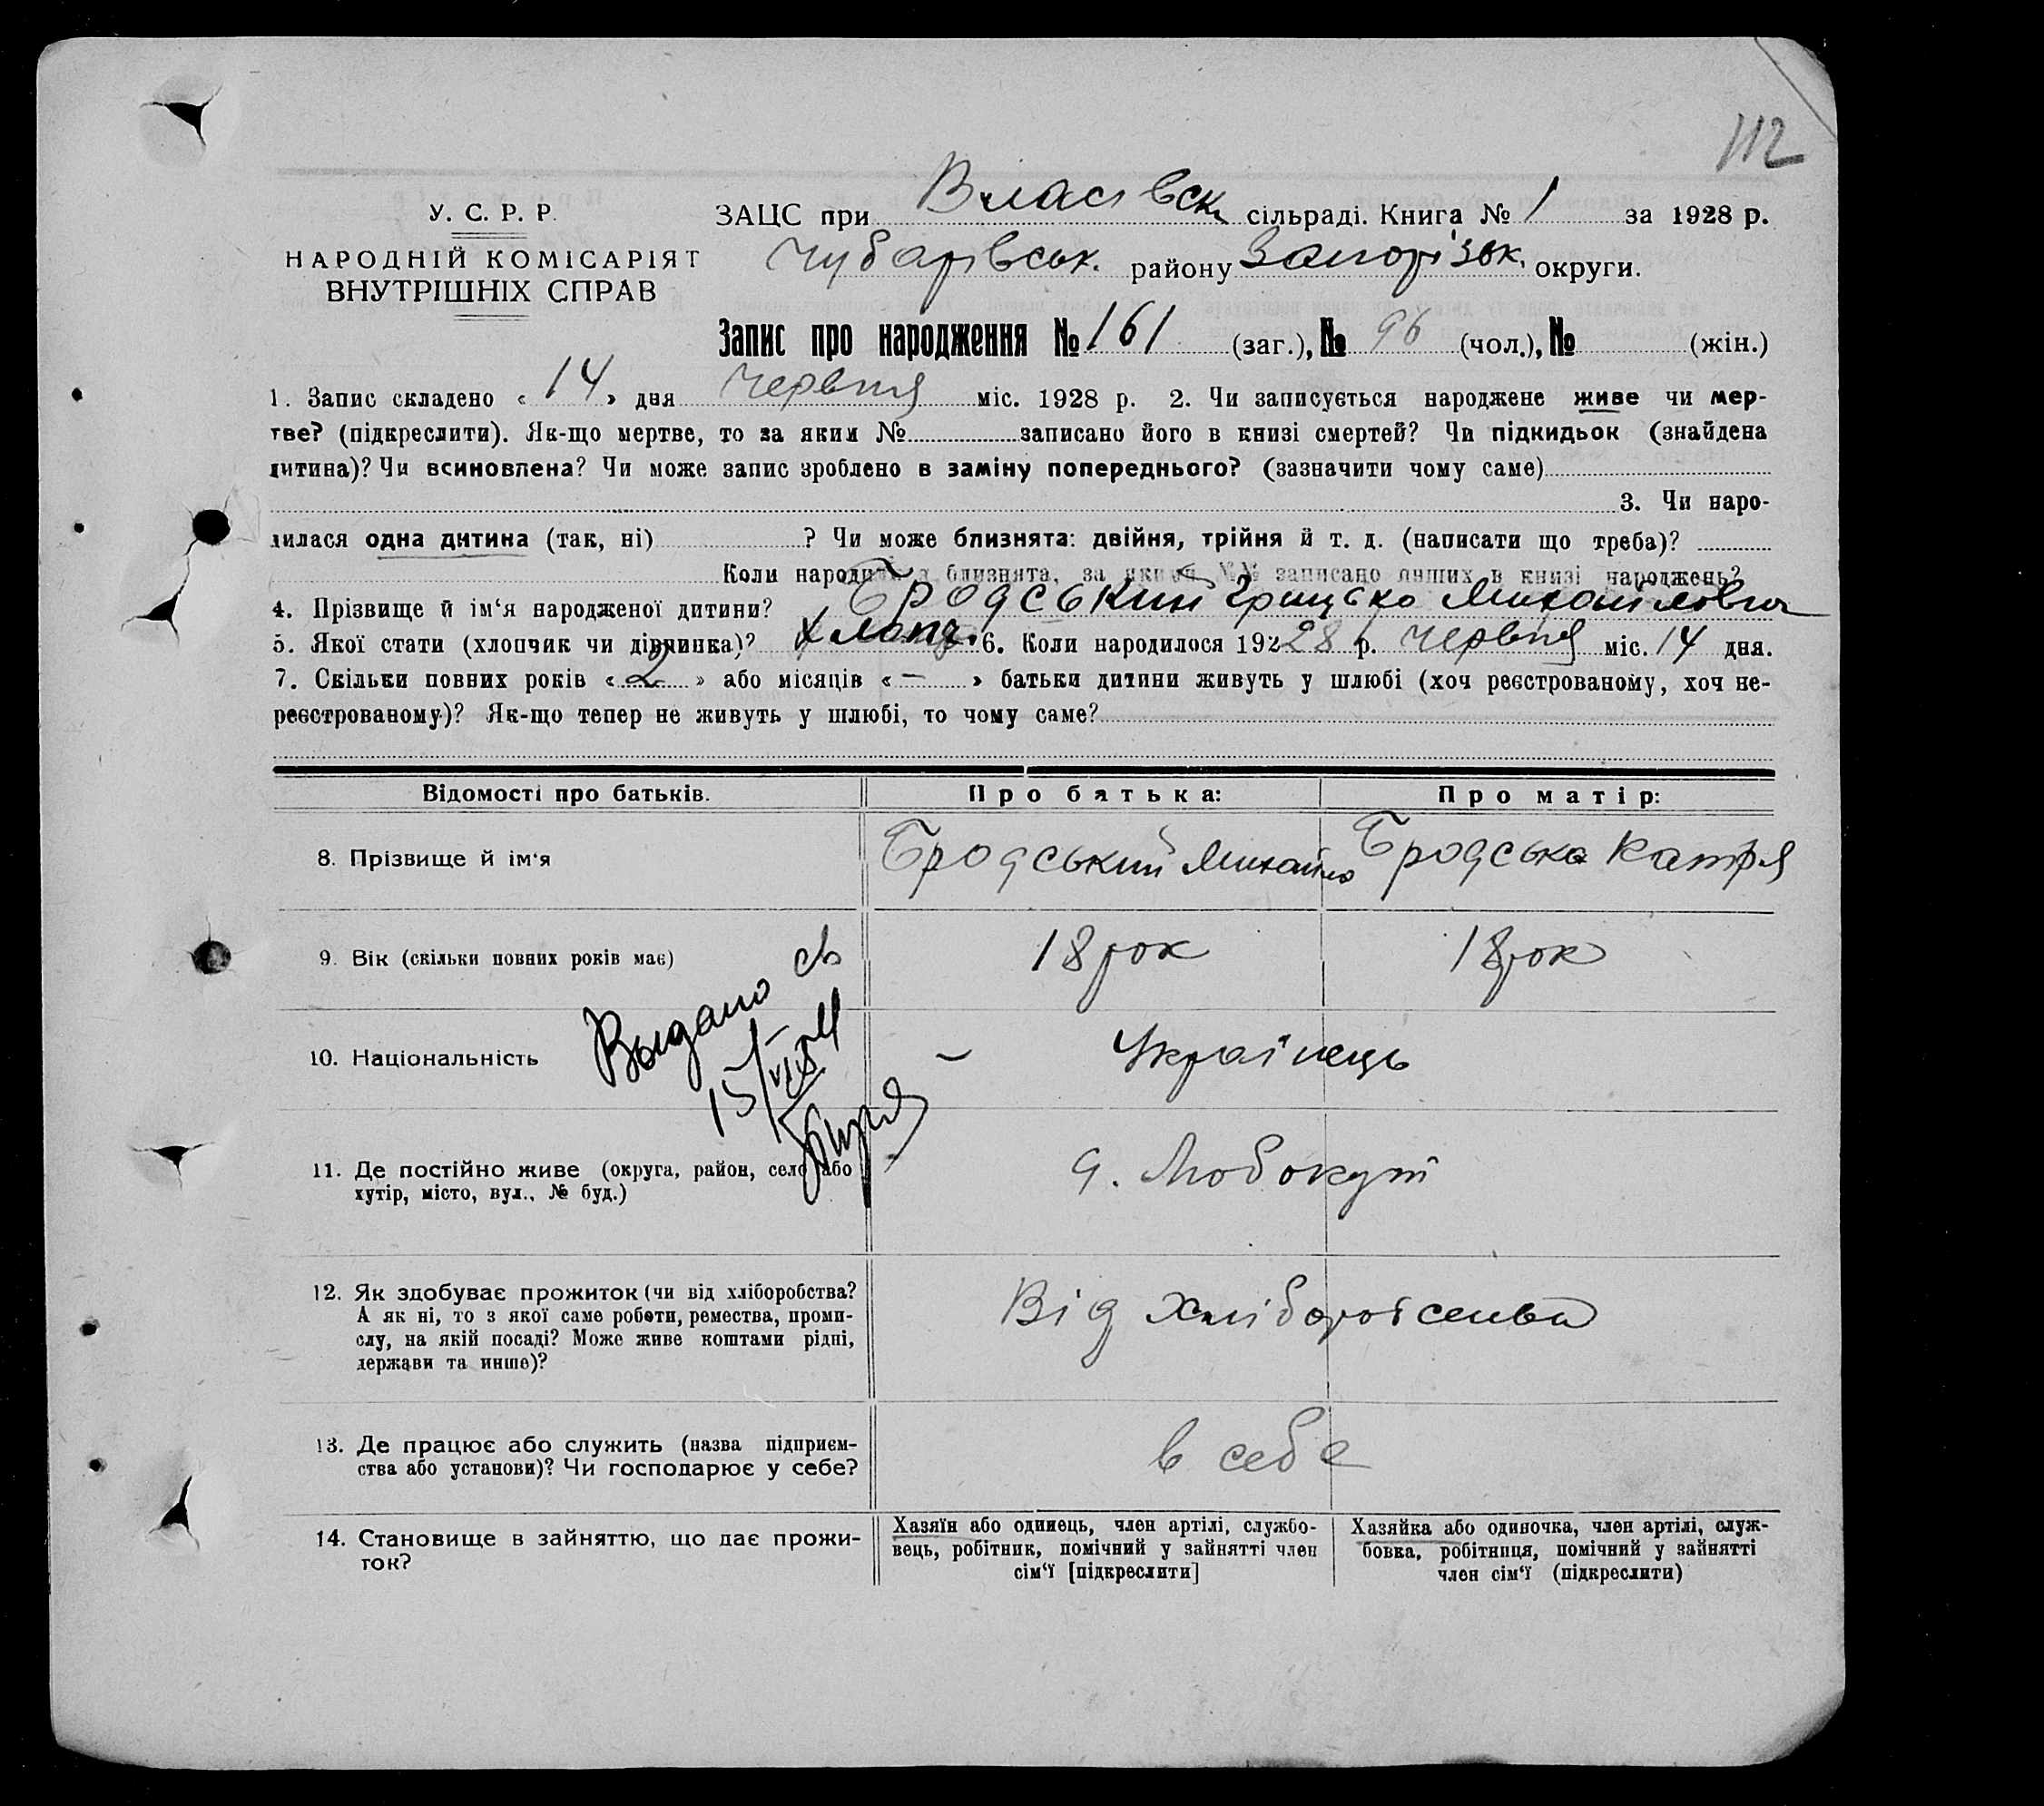 112
У. С. Р. Р.
НАРОДНІЙ КОМІСАРІЯТ
ВНУТРІШНІХ СПРАВ
ЗАЦС при Власівськ сільраді. Книга № 1 за 1928 р.
Чубарівськ. району Запорізьк. округи.
Запис про народження № 161 (заг.), № 96 (чол.), № (жін.)
1. Запис складено « 14 » дня червня міс. 1928 р. 2. Чи записується народжене живе чи мер-
тве? (підкреслити). Як-що мертве, то за яким № записано його в книзі смертей? Чи підкидьок (знайдена
дитина)? Чи всиновлена? Чи може запис зроблено в заміну попереднього? (зазначити чому саме)
3. Чи наро-
дилася одна дитина (так, ні) ? Чи може близнята: двійня, трійня й т. д. (написати що треба)?
Коли народилися близнята, за якими №№ записано инших в книзі народжень?
4. Прізвище й ім‘я народженої дитини? Бродський Грицько Михайлович
5. Якої стати (хлопчик чи дівчинка)? Хлопч. 6. Коли народилося 192 28 р. червня міс. 14 дня.
7. Скільки повних років « 2 » або місяців « — » батьки дитини живуть у шлюбі (хоч реєстрованому, хоч не-
реєстрованому)? Як-що тепер не живуть у шлюбі, то чому саме?
Відомості про батьків. Про батька: Про матір:
8. Прізвище й ім‘я Бродський Михайло Бродська Катря
9. Вік (скільки повних років має) 18 рок 18 рок
Выдано св
10. Національність — Українець
15/VII 54
11. Де постійно живе (округа, район, село або
хутір, місто, вул., № буд.)
Любокут
12. Як здобуває прожиток (чи від хліборобства?
А як ні, то з якої саме роботи, ремества, проми-
слу, на якій посаді? Може живе коштами рідні,
держави та инше)?
Від хліборобсства
13. Де працює або служить (назва підприєм-
ства або установи)? Чи господарює у себе?
в себе
14. Становище в зайняттю, що дає прожи-
ток?
Хазяїн або одинець, член артілі, службо-
вець, робітник, помічний у зайнятті член
сім‘ї [підкреслити]
Хазяйка або одиночка, член артілі, служ-
бовка, робітниця, помічний у зайнятті
член сім‘ї (підкреслити)